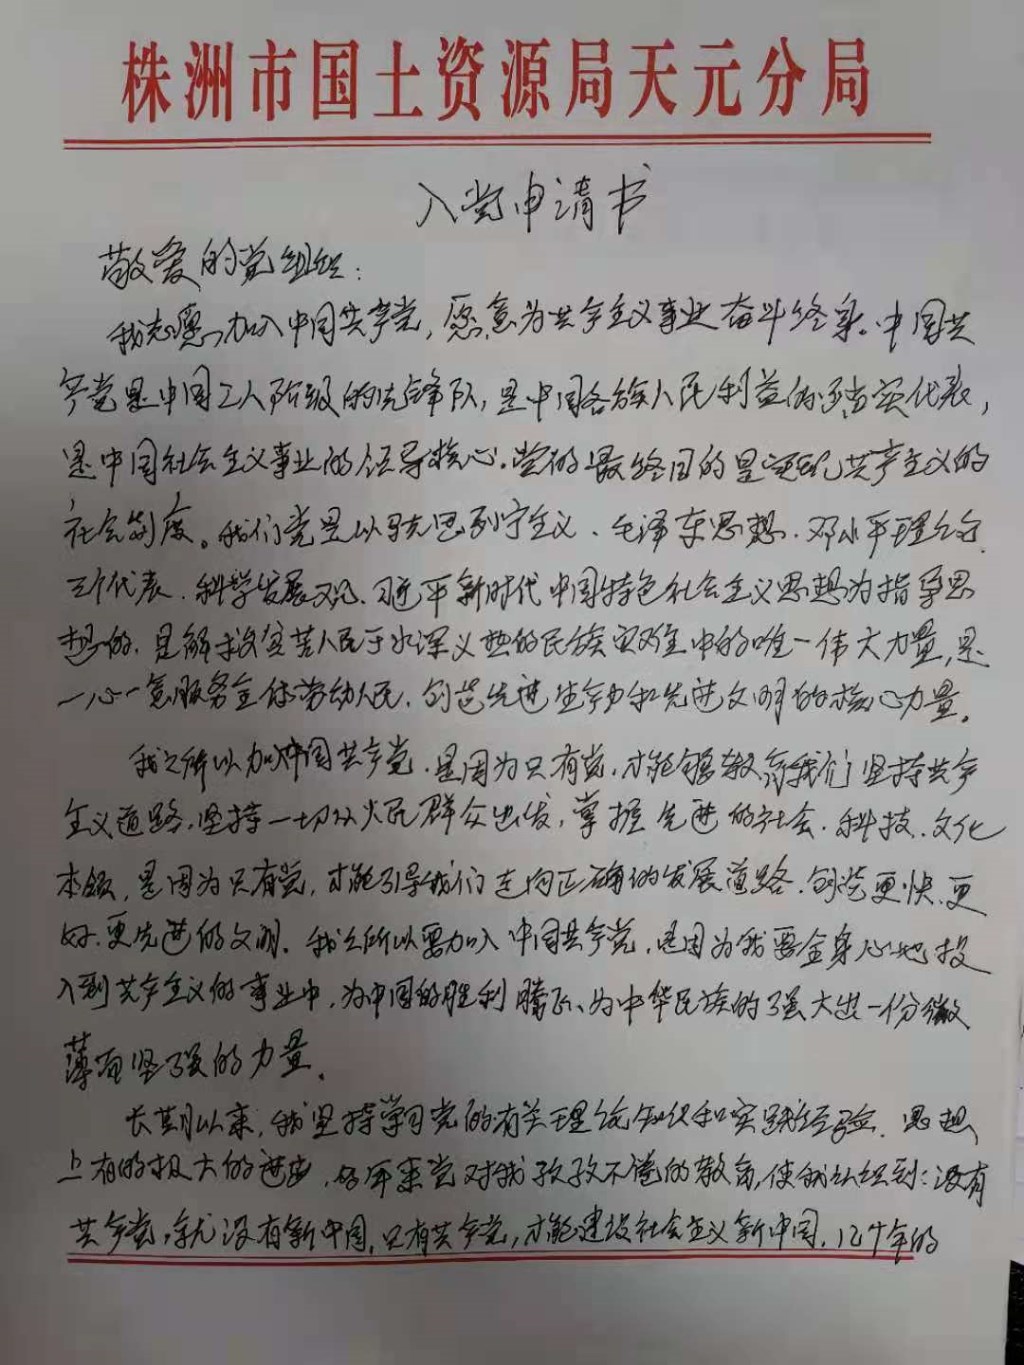 株洲市国土资源局天元分局
入党申请书
敬爱的党组织：
我志愿加入中国共产党，愿意为共产主义事业奋斗终身。中国共
产党是中国工人阶级的先锋队，是中国各族人民利益的忠实代表，
是中国社会主义事业的领导核心。党的最终目的是实现共产主义的
社会制度。我们党是以马克思列宁主义、毛泽东思想、邓小平理论、
三个代表、科学发展观、习近平新时代中国特色社会主义思想为指导思
想的，是解救贫苦人民于水深火热的民族灾难中的唯一伟大力量，是
一心一意服务全体劳动人民，创造先进生产力和先进文明的核心力量。
我之所以加入中国共产党，是因为只有党，才能够教育我们坚持共产
主义道路，坚持一切从人民群众出发，掌握先进的社会、科技、文化
本领，是因为只有党，才能引导我们走向正确的发展道路，创造更快、更
好、更先进的文明。我之所以要加入中国共产党，是因为我要全身心地投
入到共产主义的事业中，为中国的胜利腾飞、为中华民族的强大进一份微
薄而坚强的力量。
长期以来，我坚持学习党的有关理论知识和实践经验，思想
上有的极大的进步，多年来党对我孜孜不倦的教育，使我认识到：没有
共产党，就没有新中国，只有共产党，才能建设社会主义新中国，几十年的